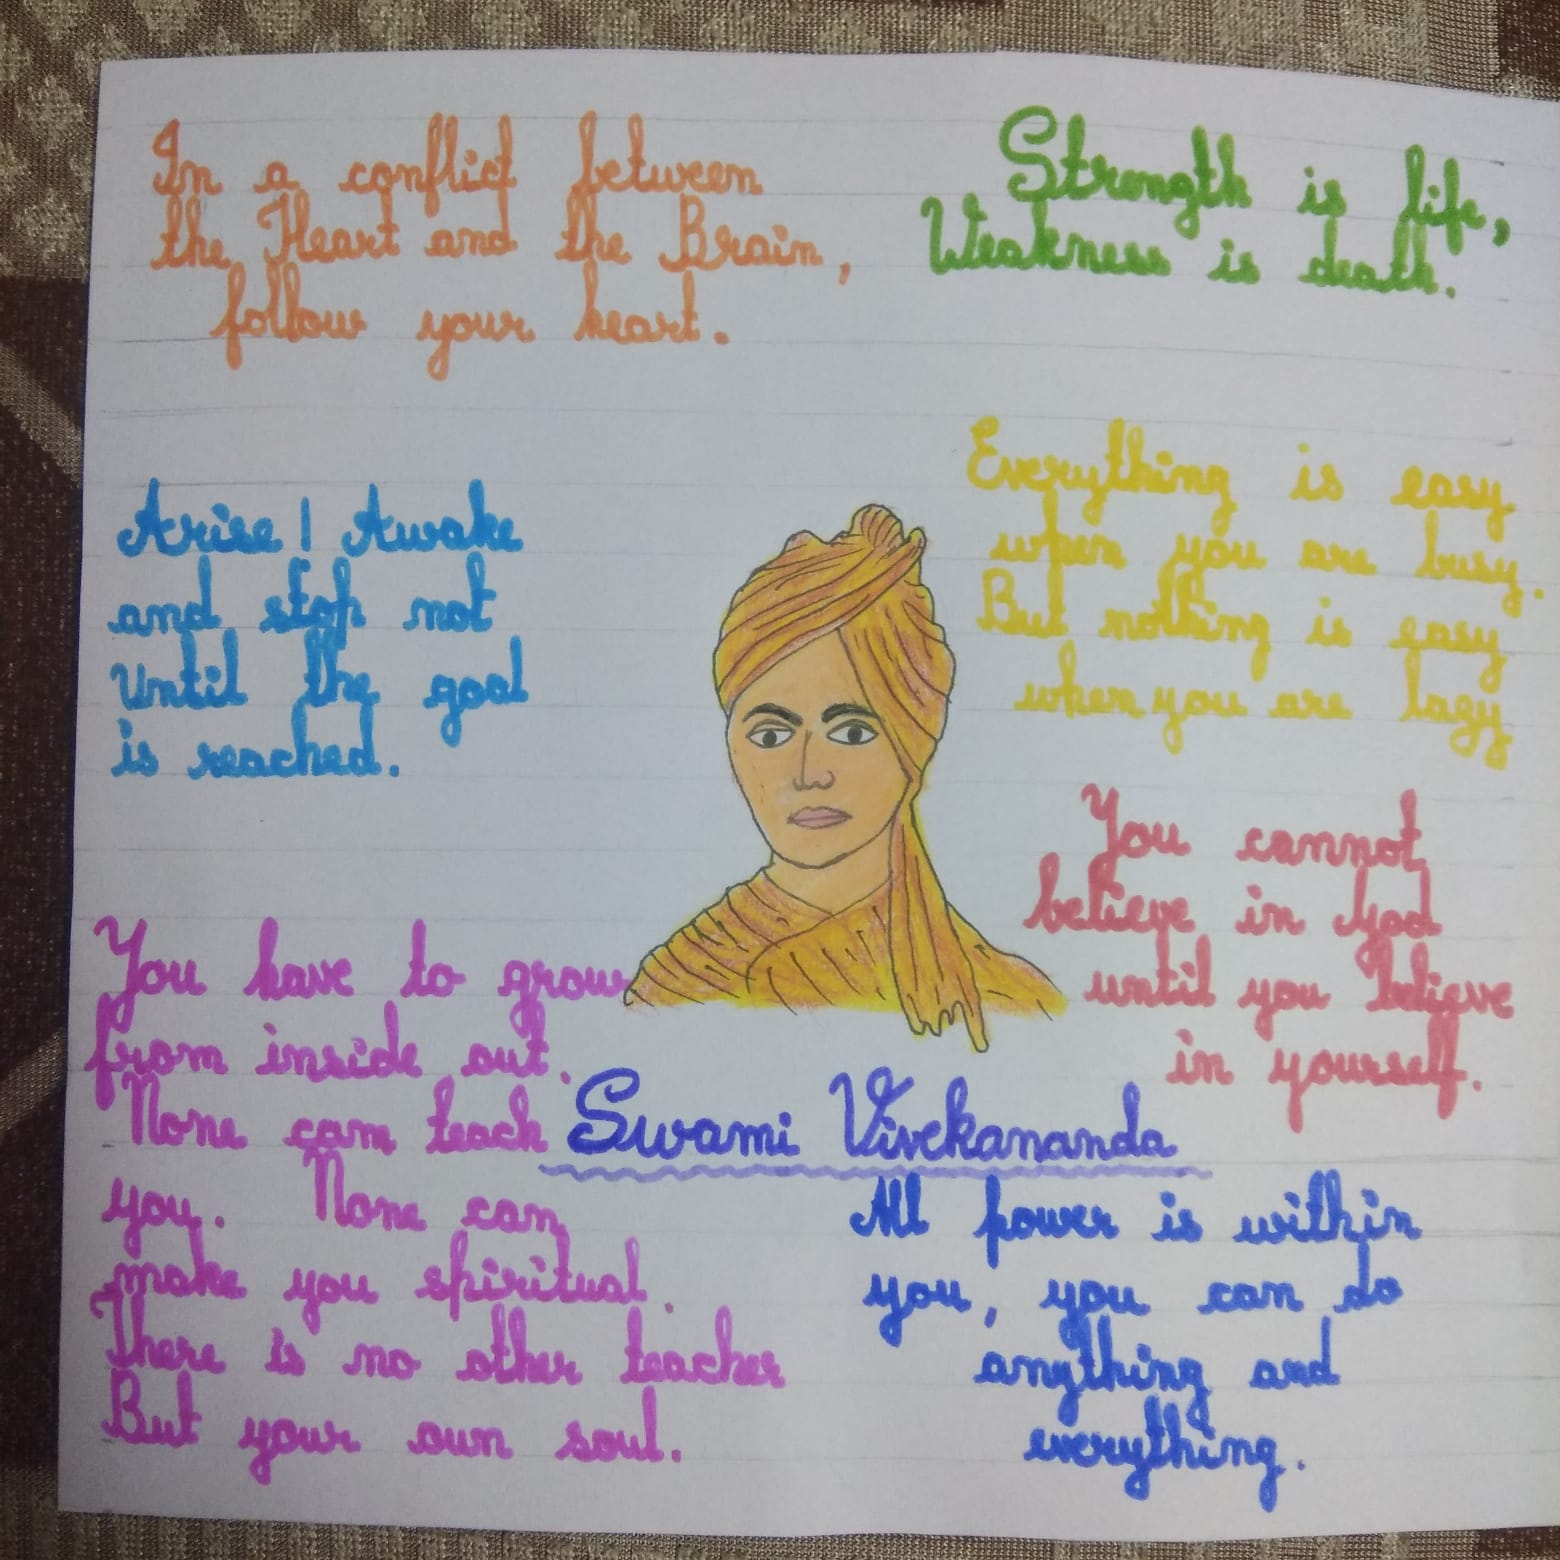 In a conflict between
the Heart and the Brain,
follow your heart.
Strength is life,
Weakness is death.
Arise! Awake
and stop not
Until the goal
is reached.
Everything is easy
when you are busy.
But nothing is easy
when you are lazy
You cannot
believe in god
until you believe
in yourself.
You have to grow
from inside out.
None can teach
you. None can
make you spiritual.
There is no other teacher
But your own soul.
Swami Vivekananda
All power is within
you, you can do
anything and
everything.